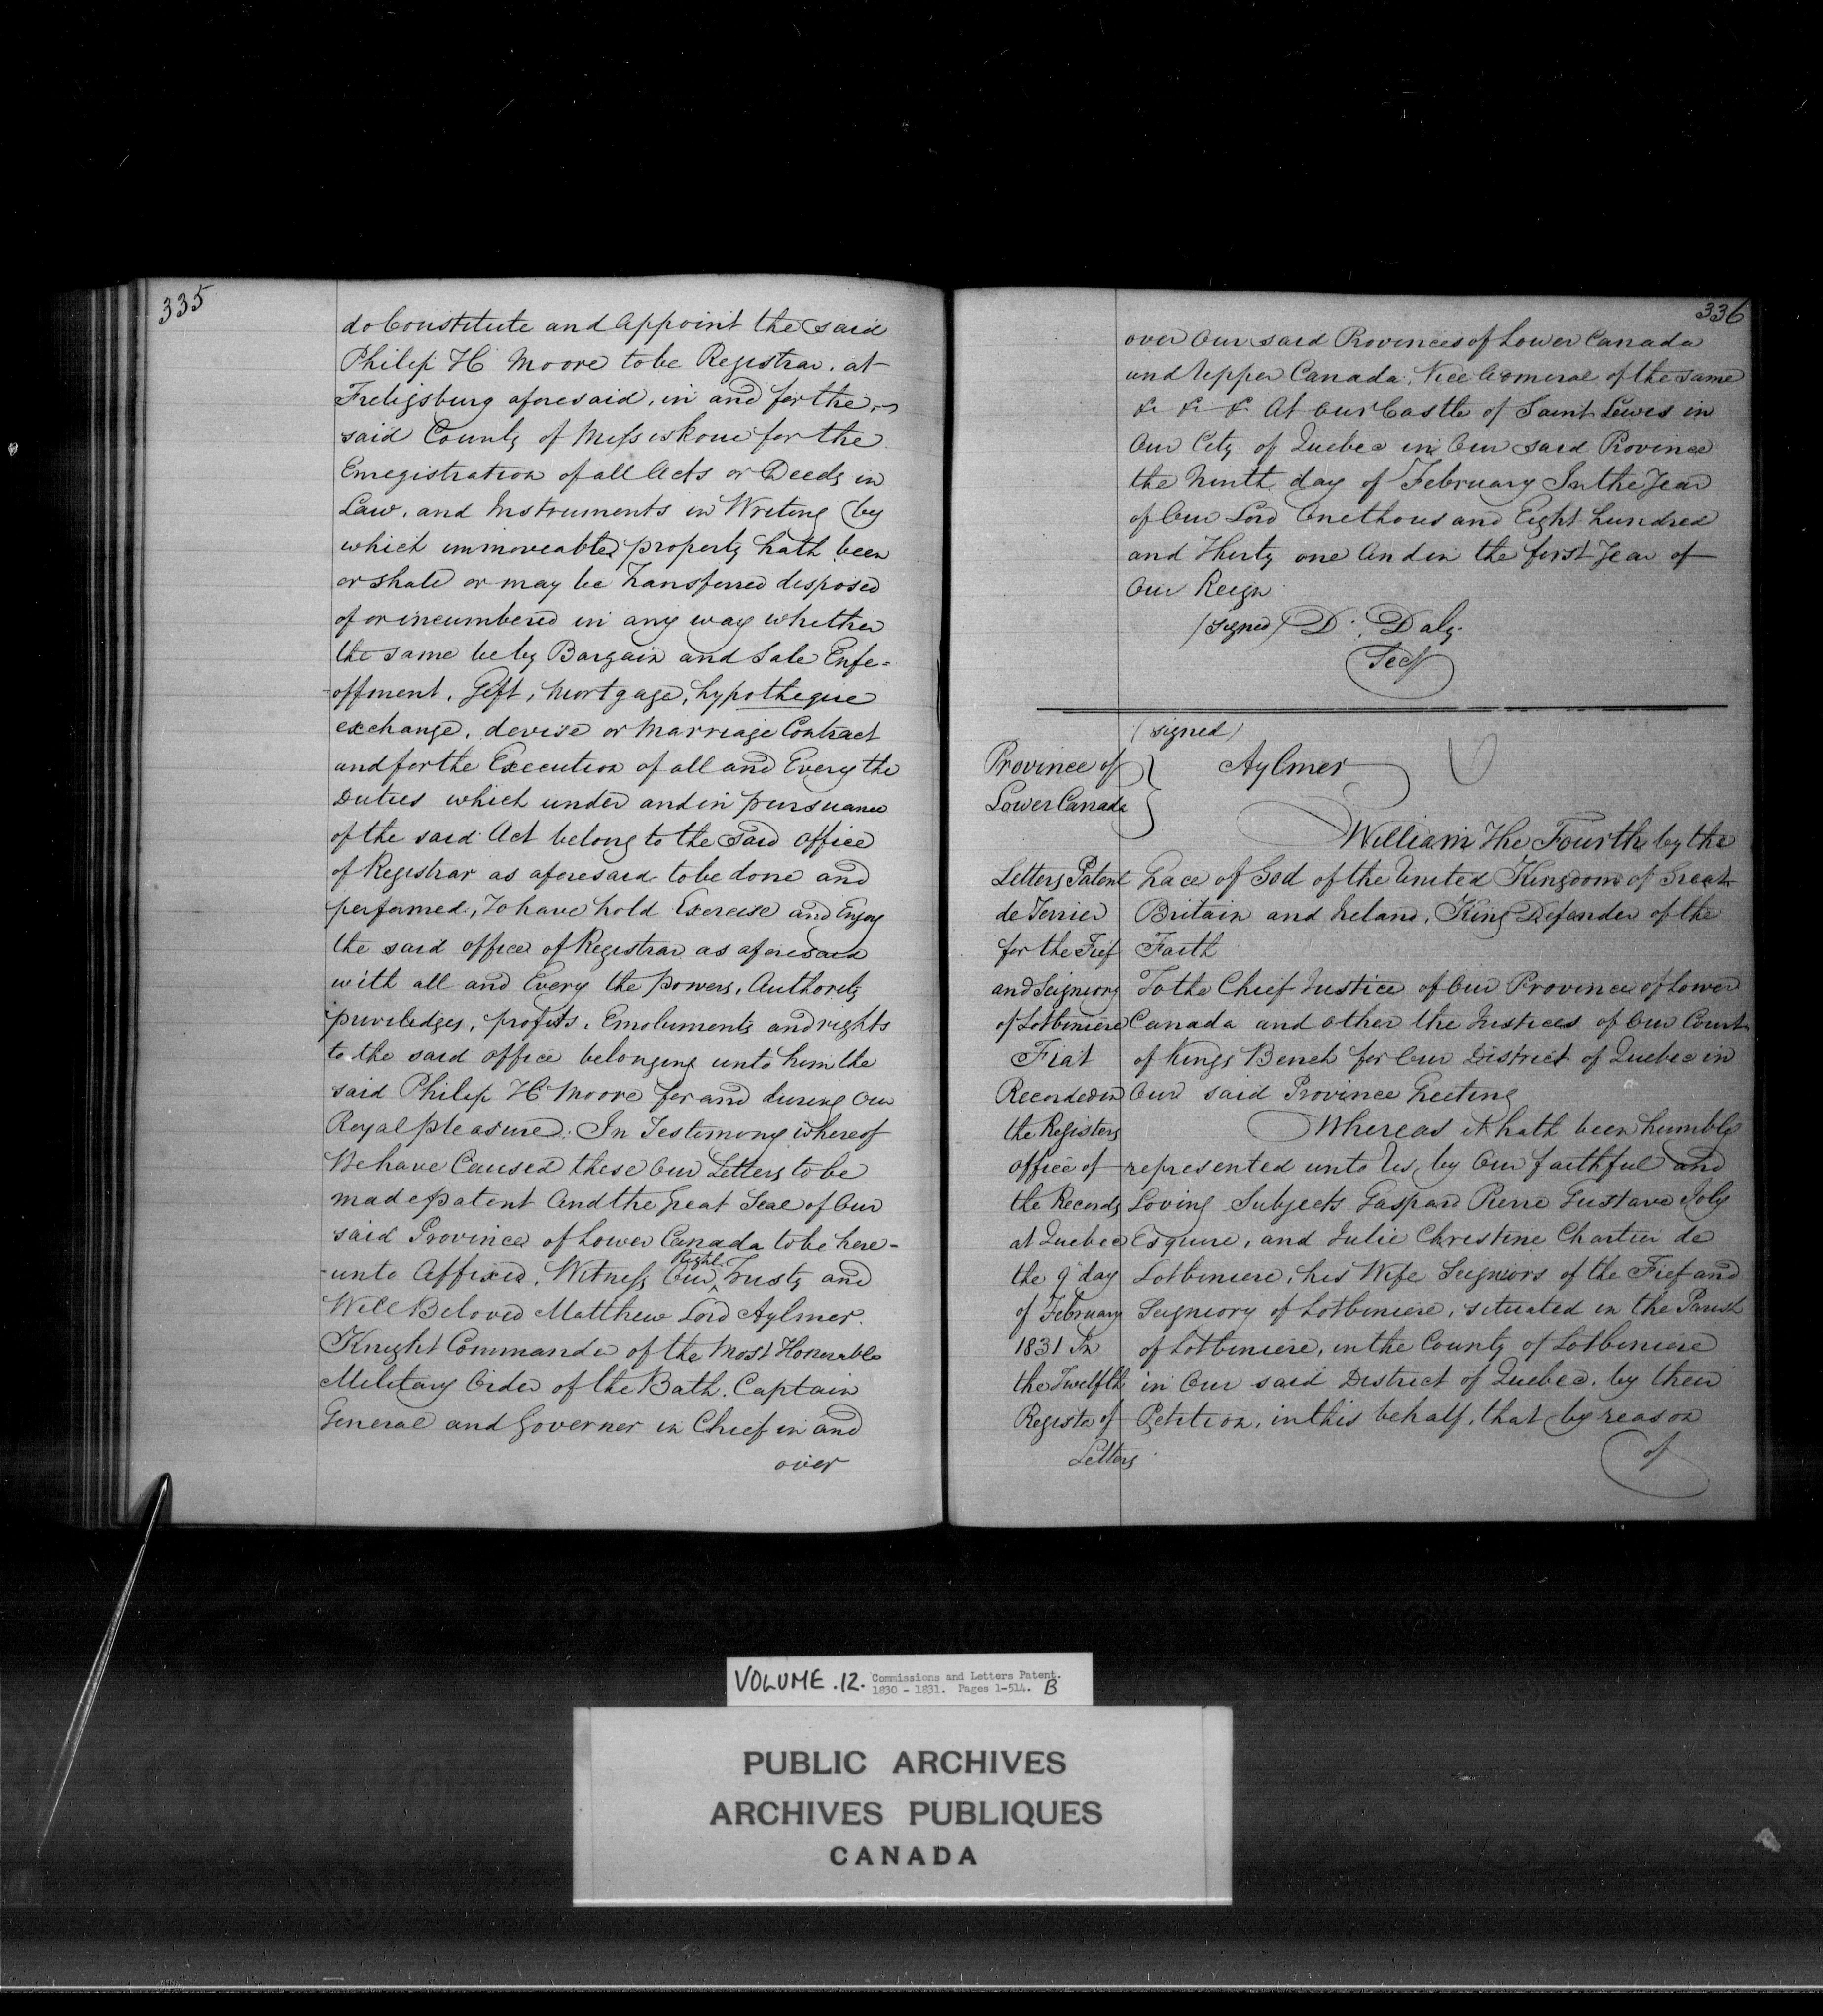 335
do Constitute and Appoint the said
Philip H Moore to be Registrar, at
Freligsburg aforesaid, in and for the
said County of Missiskoui for the
Enregistration of all Acts or Deeds in
Law, and Instruments in Writing (by
which immoveable property hath been
or shall or may be Transferred disposed
of or incumbered in any way whether
the same be by Bargain and Sale Enfe=
-offment, Gift, Mortgage, hypotheque
exchange, devise or Marriage Contract
and for the Execution of all and Every the
Duties which under and in pursuance
of the said Act belong to the said office
of Registrar as aforesaid to be done and
performed, To have hold Exercise and Enjoy
the said office of Registrar as aforesaid
with all and Every the powers, Authority
priviledges, profits, Emoluments and rights
to the said office belonging unto him the
said Philip H Moore for and during Our
Royal pleasure. In Testimony whereof
We have Caused these Our Letters to be
made patent And the Great Seal of Our
said Province of Lower Canada to be here-
-unto Affixed, Witness Our Right Trusty and
Well Beloved Matthew Lord Aylmer.
Knight Commander of the Most Honorable
Military Order of the Bath, Captain
General and Governer in Chief in and
over
336
over Our said Provinces of Lower Canada
and Upper Canada, Vice Admiral of the same
&c &c &c At Our Castle of Saint Lewis in
Our City of Quebec in Our said Province
the Ninth day of February In the Year
of Our Lord One thousand Eight hundred
and Thirty one And in the first Year of
Our Reign
(signed) D. Daly.
Secy
(signed)
Province of
Lower Canada
Aylmer
William The Fourth by the
Grace of God of the United Kingdom of Great
Britain and Ireland, King Defender of the
Faith
To the Chief Justice of Our Province of Lower
Canada and other the Justices of Our Court
of Kings Bench for Our District of Quebec in
Our said Province Greeting
Whereas it hath been humbly
represented unto Us, by Our faithful and
Loving Subjects Gaspard Pierre Gustave Joly
Esquire, and Julie Christine Chartier de
Lotbiniere, his Wife Seigniors of the Fief and
Seigniory of Lotbiniere, situated in the Parish
of Lotbiniere, in the County of Lotbiniere
in Our said District of Quebec, by their
Petition, in this behalf, that by reason
of
Letters Patent
de Terrier
for the Fief
and Seigniory
of Lotbiniere
Fiat
Recorded in
the Registers
office of
the Records
at Quebec
the 9 day
of February
1831 In
the Twelfth
Register of
Letters
VOLUME .12. Commissions and Letters Patent.
1830 - 1831. Pages 1-514. B
PUBLIC ARCHIVES
ARCHIVES PUBLIQUES
CANADA